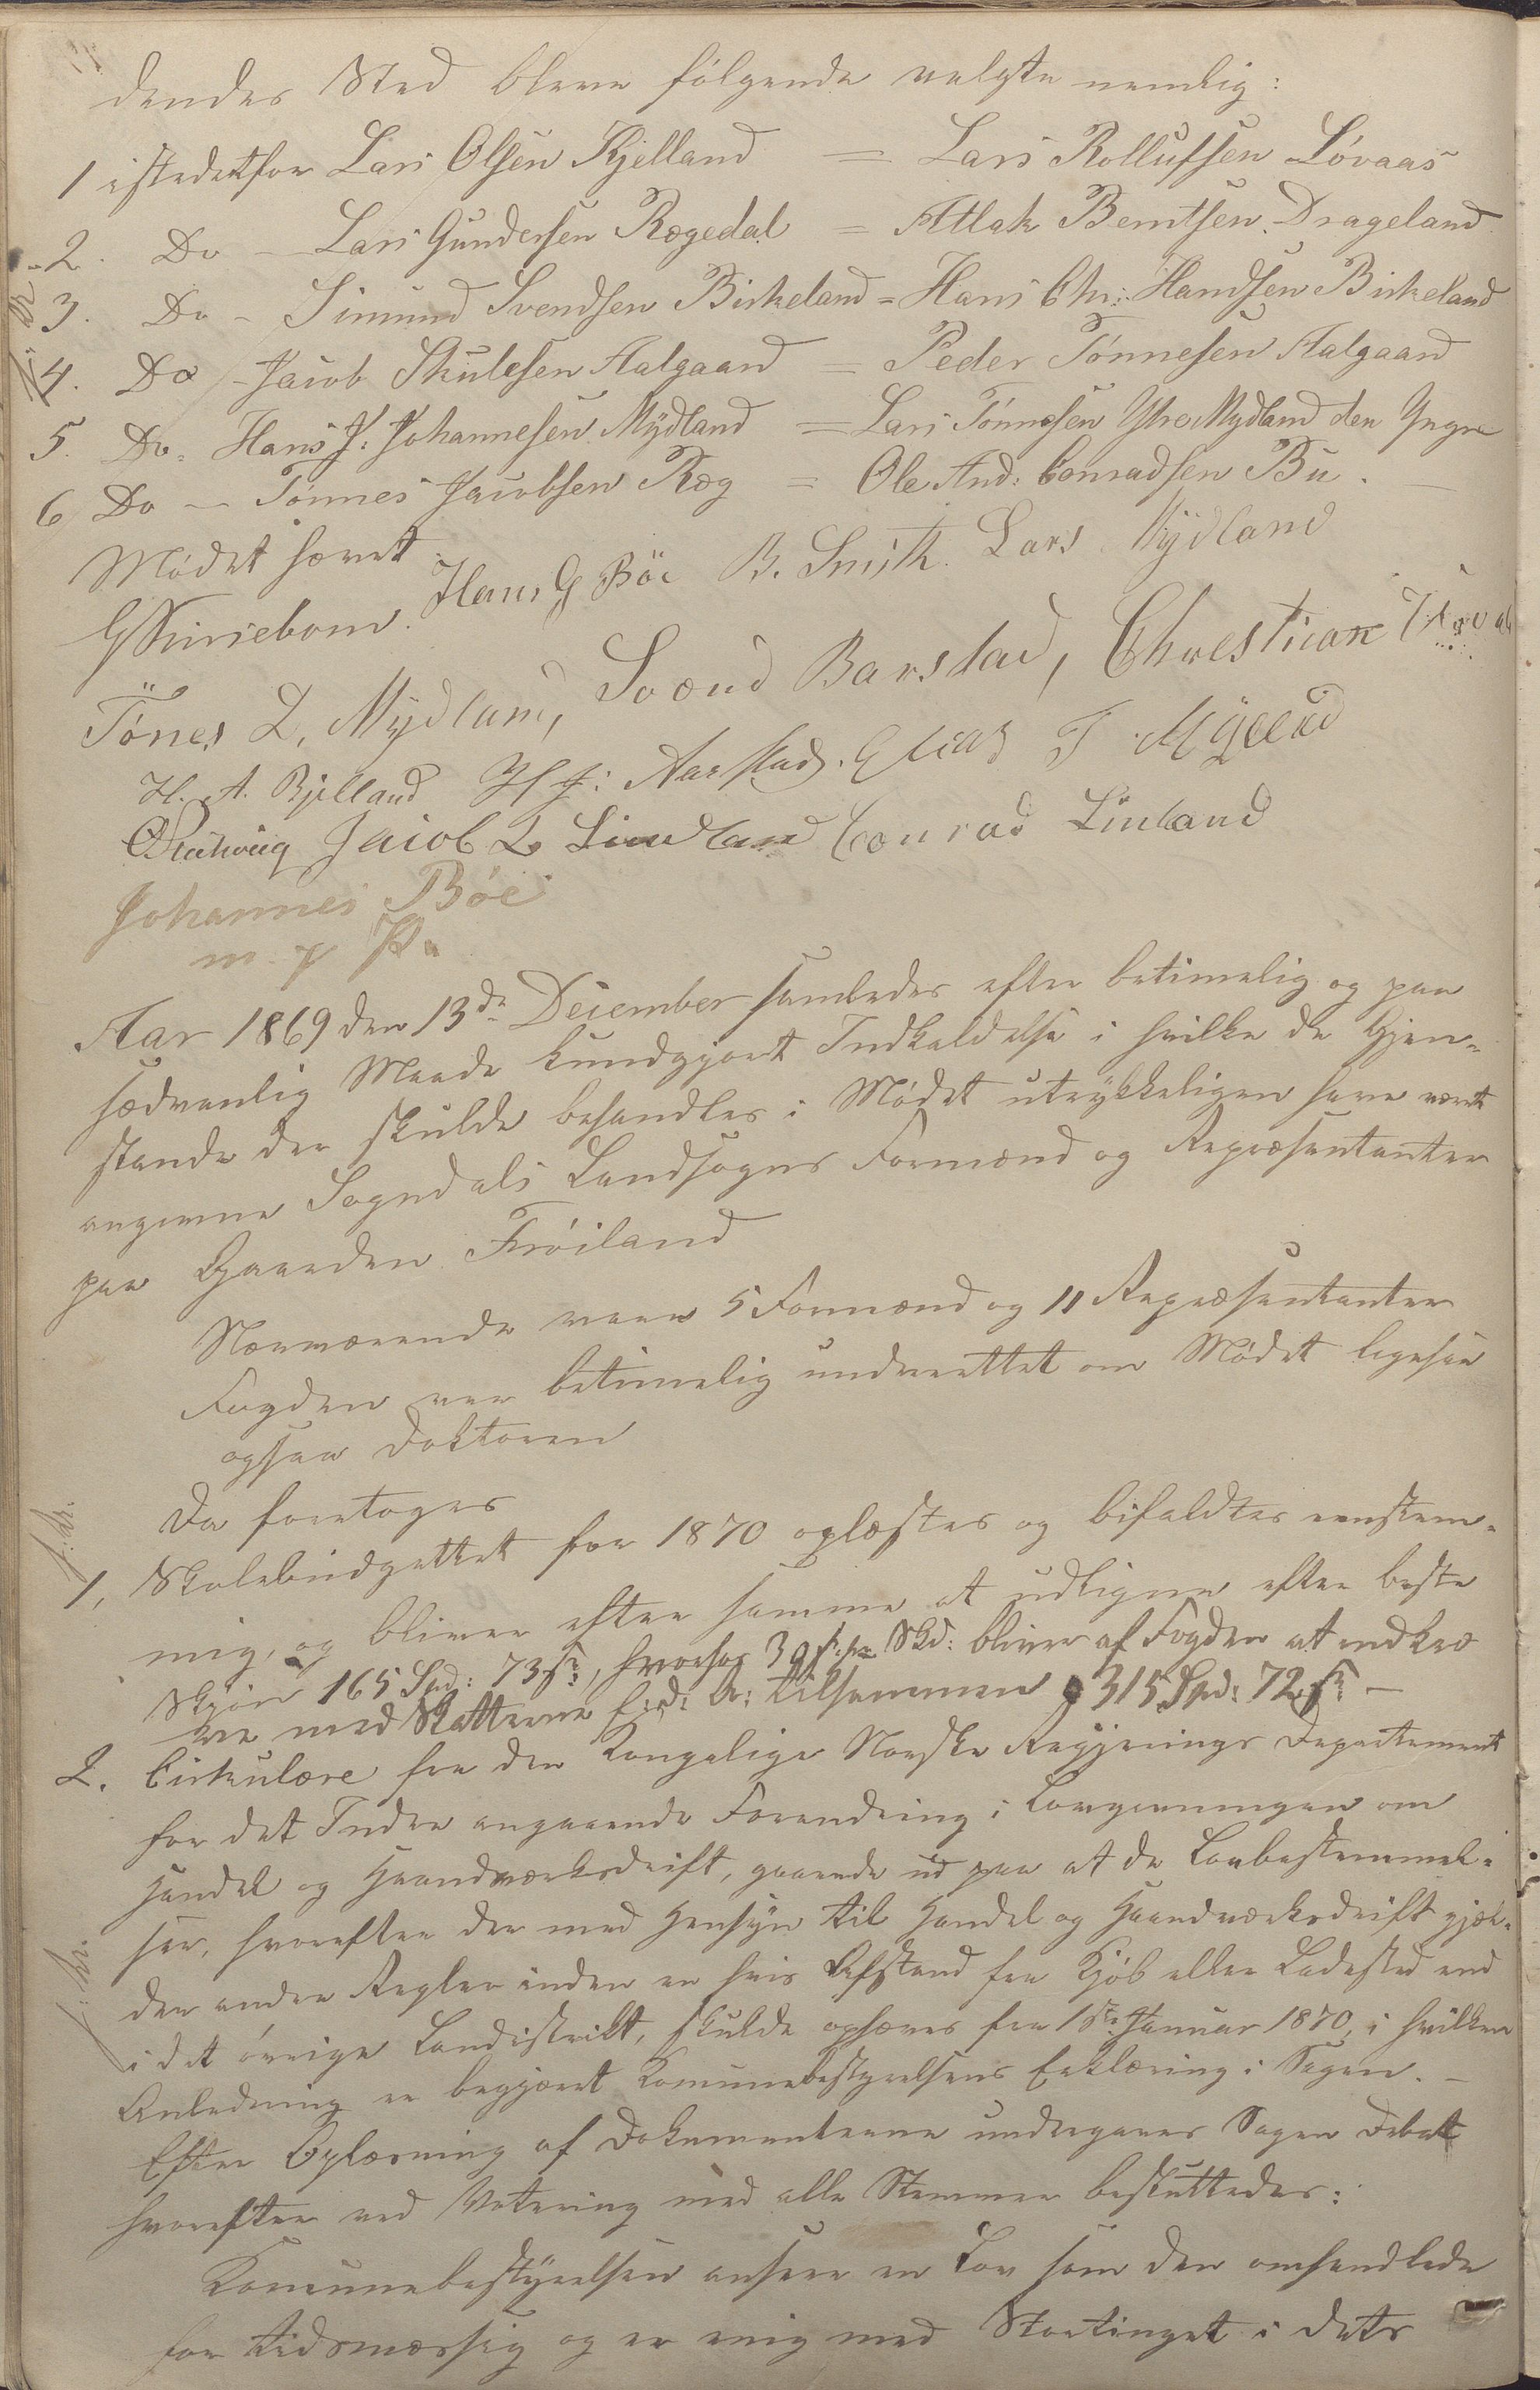 dendes Sted bleve følgende valgte nemlig:
1 istedetfor Lars Olsen Kjelland = Lars Rollufsen Løvaas
2. Do — Lars Gundersen Rægedal = Atlak Berntsen Drageland
3. Do - Simund Svendsen Birkeland = Hans Chr: Handsen Birkeland
4. Do - Jacob Skulesen Aalgaard = Peder Tønnesen Aalgaard
5. Do. Hans J: Johannesen Mydland = Lars Tønnesen Ytre Mydland den Yngre
6 Do — Tønnes Jacobsen Ræg = Ole And: Conradsen Bu. —
Mødet hævet.
Hans G Böe B. Smith. Lars Mydland
Tönes L. Mydland, Svænd Barstad, Chrestian
H. A. Bjelland H J: Aarstad. Elias T Mysend
Jacob L Lindland Conrad Linland
Johannes Böe
m. p. Pn
Aar 1869 den 13de December samledes efter betimelig og paa
sædvanlig Maade kundgjort Indkaldelse i hvilke de Gjen-
stande der skulde behandles i Mødet utrykkeligen have været
angivne Sogndals Landsogns Formænd og Repræsentanter
paa Gaarden Frøiland
Nærværende vare 5 Formænd og 11 Repræsentanter
Fogden var betimelig underrettet om Mødet ligesaa
ogsaa Doktoren
Da foretoges
1, Skolebudgettet for 1870 oplæstes og bifaldtes eenstem-
mig, og bliver efter samme at udligne efter beste
Skjøn 165 Spd: 73 s:, hvorhos 39 s. pr Skd: bliver af Fogden at indkræ
ve med Skatterne tilsammen 315 Spd: 72 s: —
2. Cirkulære fra den Kongelige Norske Regjerings Departement
for det Indre angaaende Forandring i Lovgivningen om
Handel og Haandværksdrift, gaaende ud paa at de Lovbestemmel-
ser, hvorefter der med Hensyn til Handel og Haandværksdrift gjæl-
der andre Regler inden en hvis Afstand fra Kjøb eller Ladested end
i det øvrige Landistrikt, skulde ophæves fra 1ste Januar 1870, i hvilken
Anledning er begjæret Komunebestyrelsens Erklæring i Sagen. —
Efter Oplæsning af Dokumenterne undergaves Sagen Debat
hvorefter ved Votering med alle Stemmer besluttedes:
Komunebestyrelsen anseer en Lov som den omhandlede
for tidsmæssig og er enig med Stortinget i dets